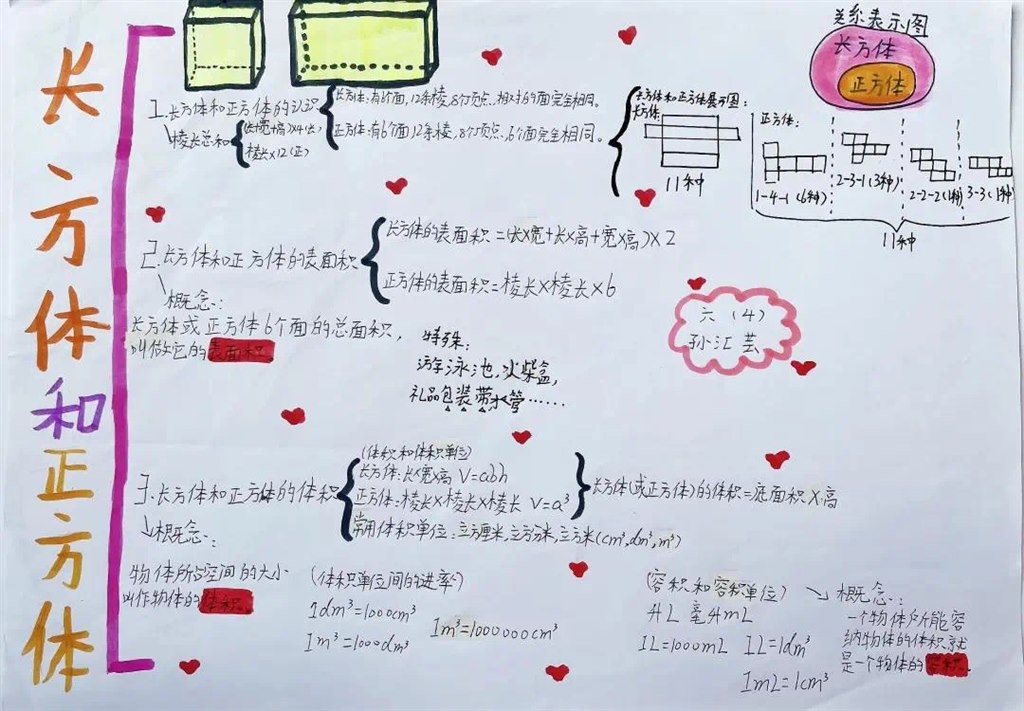 长方体和正方体
关系表示图
长方体
正方体
1.长方体和正方体的认识
长方体:有6个面,12条棱,8个顶点,相对的面完全相同。
正方体:有6个面12条棱,8个顶点,6个面完全相同。
棱长总和
(长+宽+高)×4(长)
棱长×12(正)
长方体和正方体展开图:
长方体:
11种
正方体:
1-4-1(6种)
2-3-1(3种)
2-2-2(1种)
3-3(1种)
11种
2.长方体和正方体的表面积
长方体的表面积=(长×宽+长×高+宽×高)×2
正方体的表面积=棱长×棱长×6
概念:
长方体或正方体6个面的总面积,
叫做它的表面积。
特殊:
游泳池,火柴盒,
礼品包装带水管……
六(4)
孙汇芸
3.长方体和正方体的体积
(体积和体积单位)
长方体:长×宽×高 V=abh
正方体:棱长×棱长×棱长 V=a³
常用体积单位:立方厘米,立方分米,立方米(cm³,dm³,m³)
长方体(或正方体)的体积=底面积×高
概念:
物体所占空间的大小
叫作物体的体积
(体积单位间的进率)
1dm³=1000cm³
1m³=1000dm³
1m³=1000000cm³
(容积和容积单位)
升L 毫升mL
1L=1000mL 1L=1dm³
1mL=1cm³
概念:
一个物体所能容
纳物体的体积就
是一个物体的容积